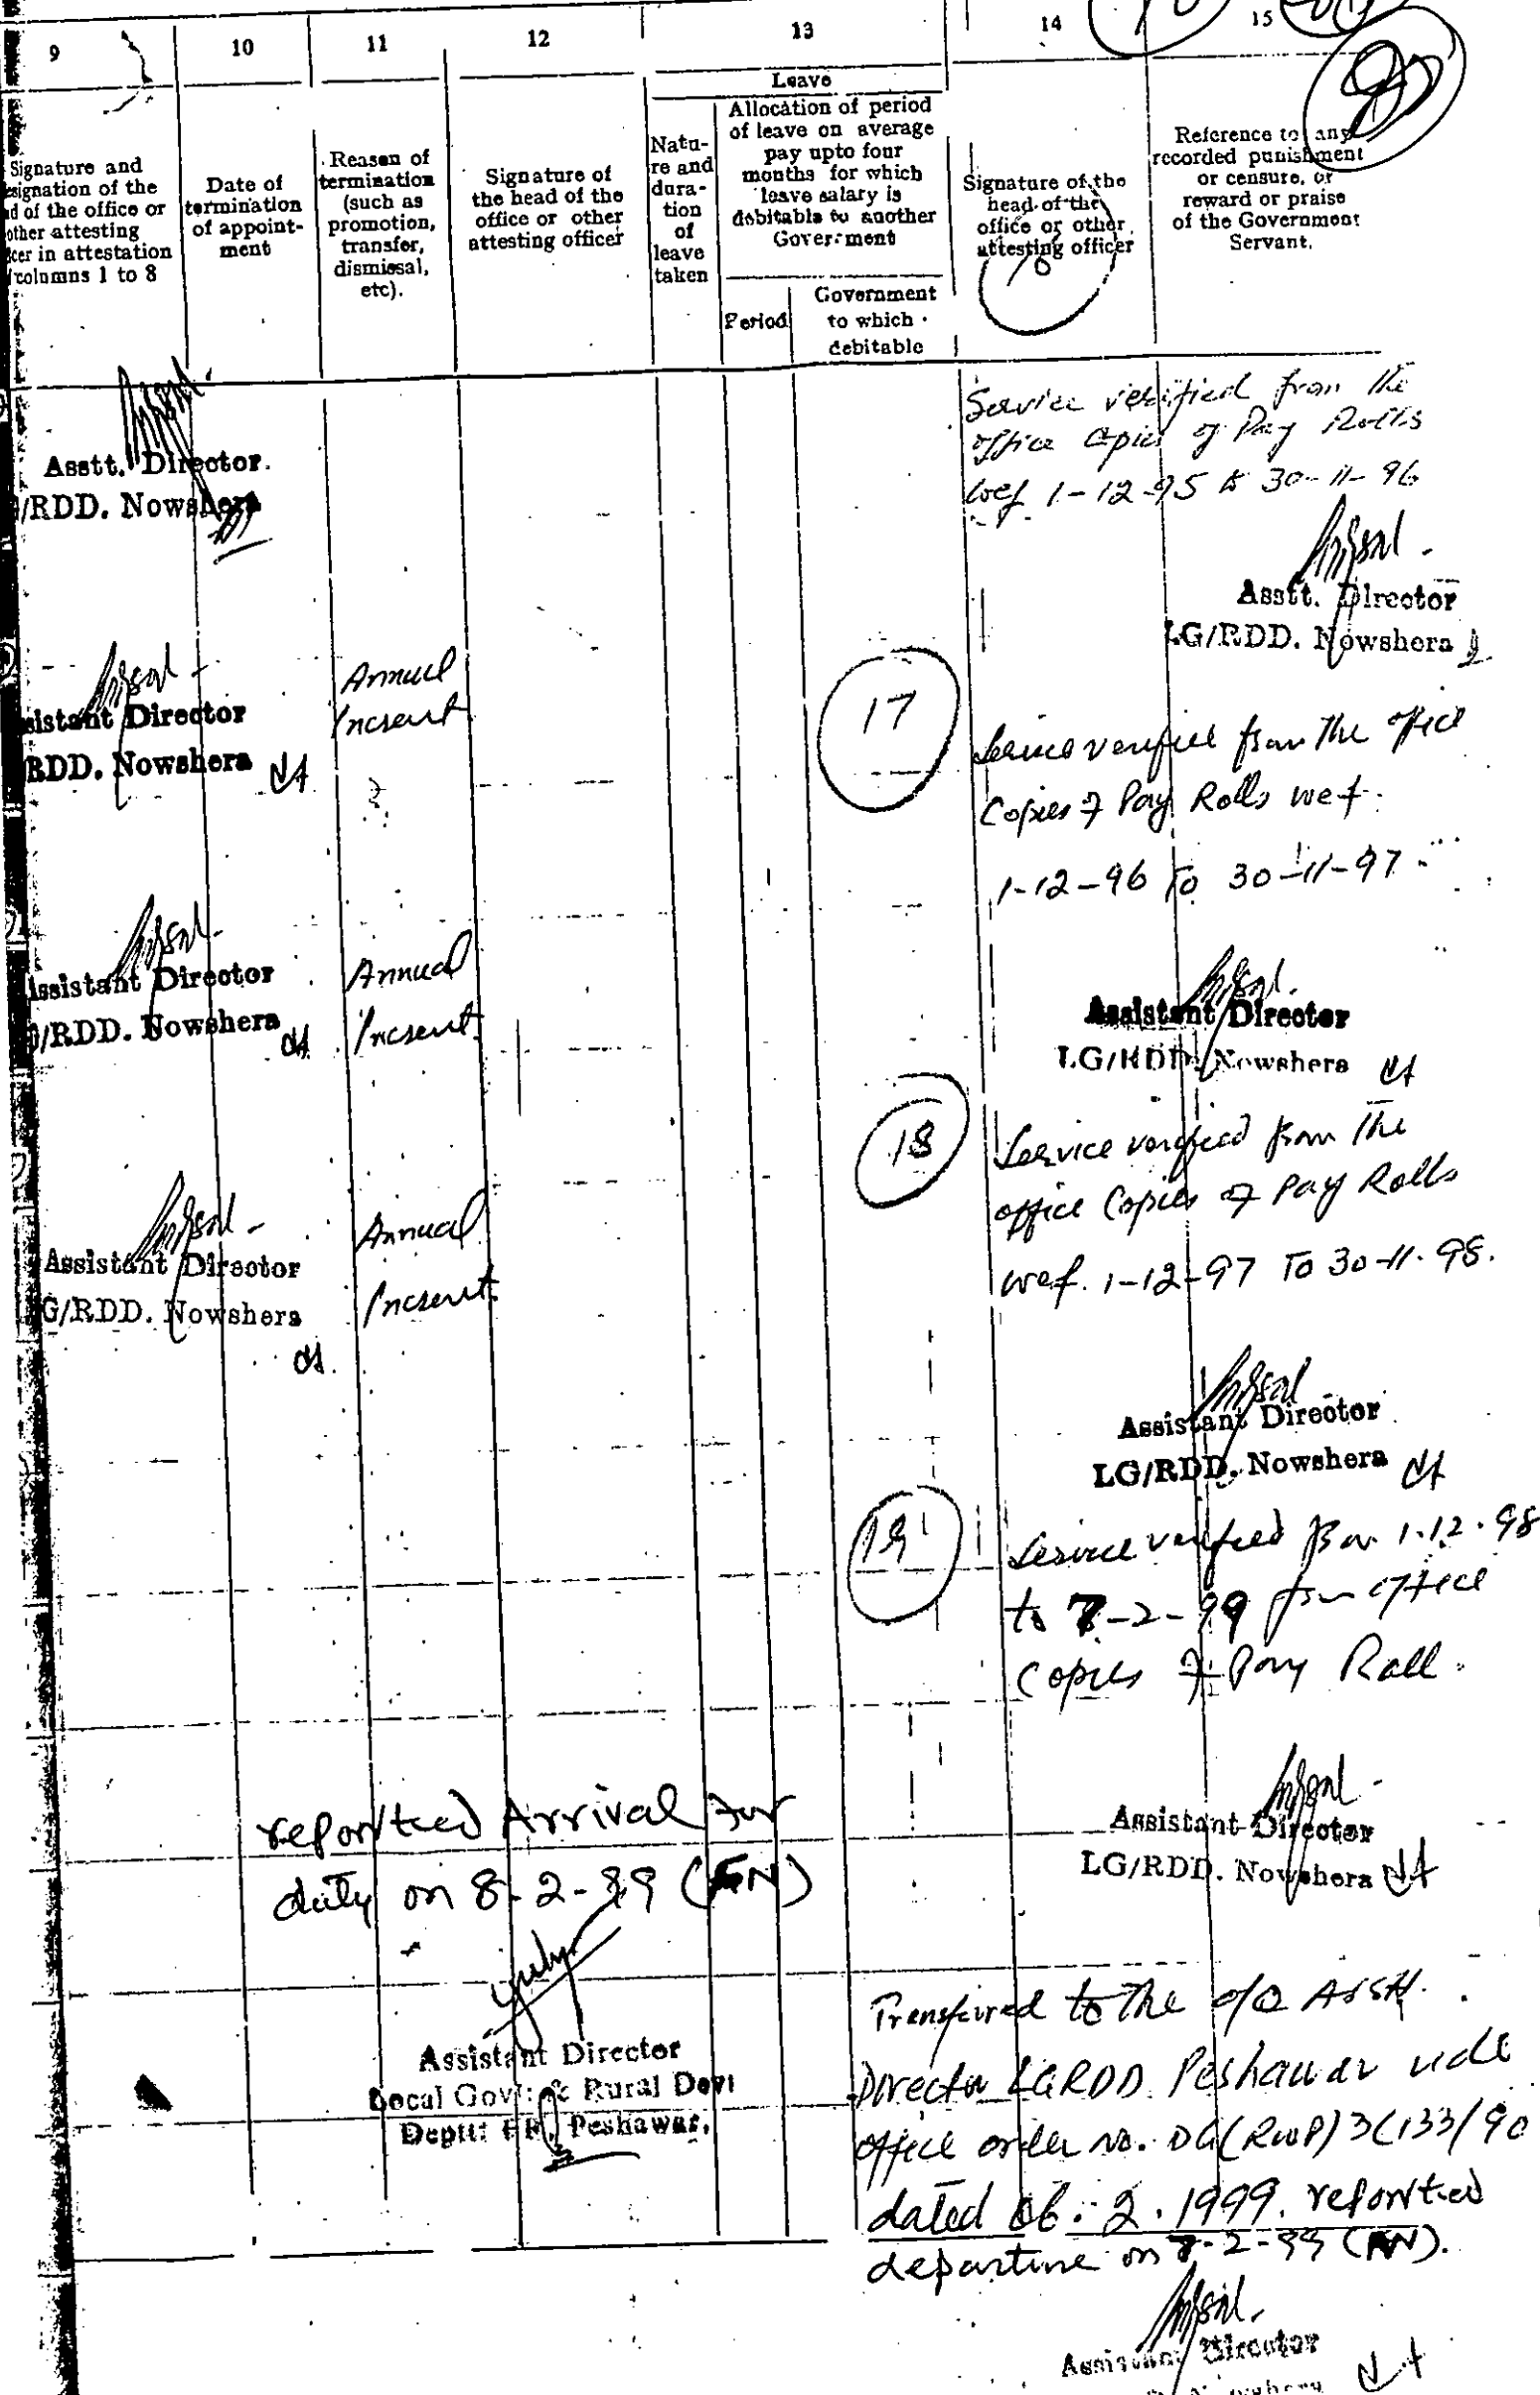 9
10
11
12
13
14
15
Signature and
esignation of the
d of the office or
other attesting
cer in attestation
columns 1 to 8
Date of
termination
of appoint-
ment
Reason of
termination
(such as
promotion,
transfer,
dismissal,
etc).
Signature of
the head of the
office or other
attesting officer
Leave
Natu-
re and
dura-
tion
of
leave
taken
Allocation of period
of leave on average
pay upto four
months for which
leave salary is
debitable to another
Government
Period
Government
to which
debitable
Signature of the
head of the
office or other
attesting officer
Reference to any
recorded punishment
or censure, or
reward or praise
of the Government
Servant.
Asstt. Director.
/RDD. Nowshera
Service verified from the
office Copies of Pay Rolls
wef 1-12-95 to 30-11-96
Asstt. Director
LG/RDD. Nowshera
sistant Director
RDD. Nowshera
Annual
Incsent
17
Service verified from the office
Copies of Pay Rolls wef.
1-12-96 To 30-11-97
Assistant Director
LG/RDD. Nowshera
Assistant Director
G/RDD. Nowshera
Annual
Incsent
18
Service verified from the
office Copies of Pay Rolls
wef. 1-12-97 To 30-11-98.
Assistant Director
LG/RDD. Nowshera
Assistant Director
G/RDD. Nowshera
Annual
Incsent
19
Service verified from 1.12.98
to 7-2-99 from office
Copies of Pay Roll.
Assistant Director
LG/RDD. Nowshera
reported Arrival For
duty on 8-2-99 (FN)
Assistant Director
Local Govt: & Rural Devt
Deptt: Peshawar.
Transfired to the o/o Asstt.
Director LGRDD Peshawar vide
office order no. DG(RWP)3(133/90
dated 06.2.1999. reported
departure on 7-2-99 (AN).
Assistant Director